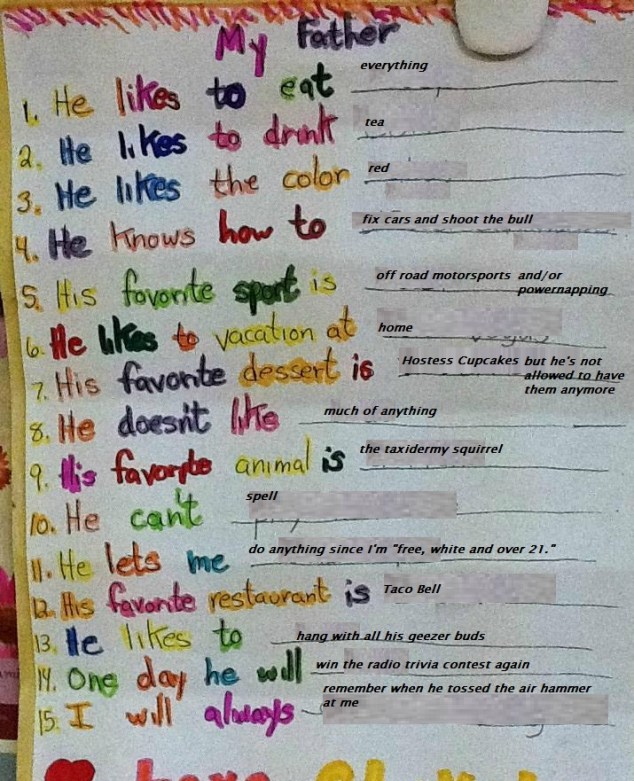 My Father
1. He likes to eat everything
2. He likes to drink tea
3. He likes the color red
4. He knows how to fix cars and shoot the bull
5. His favorite sport is off road motorsports and/or
powernapping
6. He likes to vacation at home
7. His favorite dessert is Hostess Cupcakes but he's not
allowed to have
them anymore
8. He doesn't like much of anything
9. His favorite animal is the taxidermy squirrel
10. He can't spell
11. He lets me do anything since I'm "free, white and over 21."
12. His favorite restaurant is Taco Bell
13. He likes to hang with all his geezer buds
14. One day he will win the radio trivia contest again
15. I will always remember when he tossed the air hammer
at me